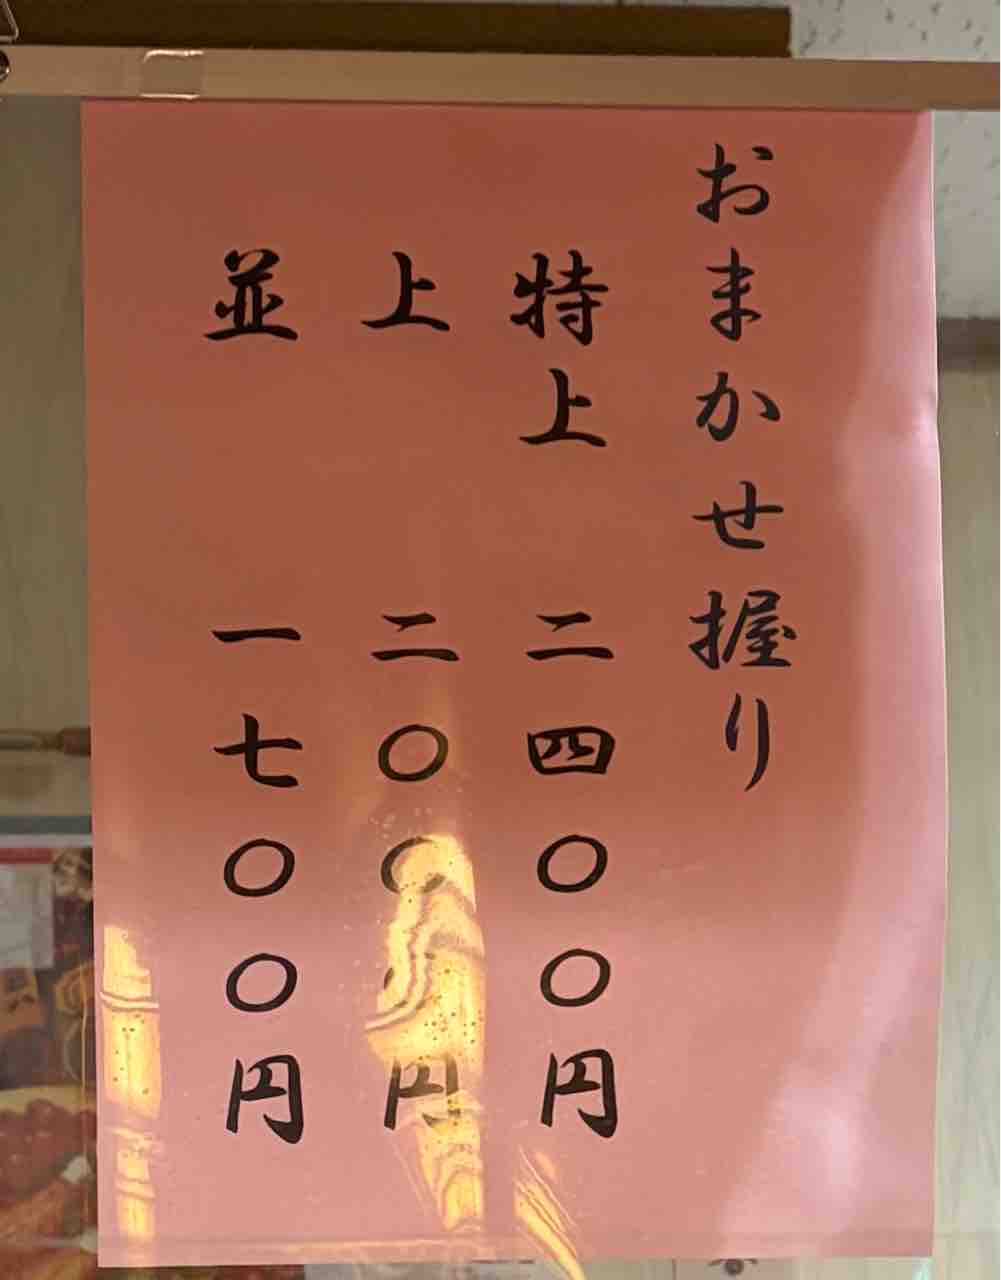 おまかせ握り
特上 二四〇〇円
上 二〇〇〇円
並 一七〇〇円